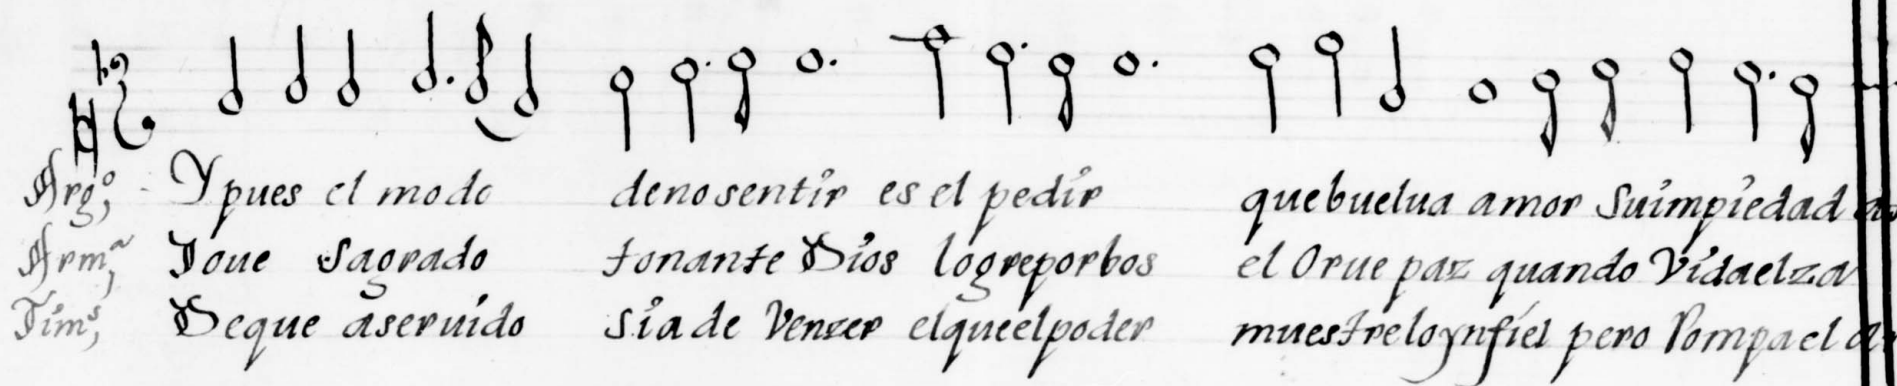 Arg.º Y pues el modo de no sentir es el pedir que buelua amor su impiedad
Arm.ª Joue sagrado tonante Dios logre por bos el Orue paz quando Vida el za
Tim.s De que a seruido si a de Venzer el que el poder muestre lo ynfiel pero Pompa el